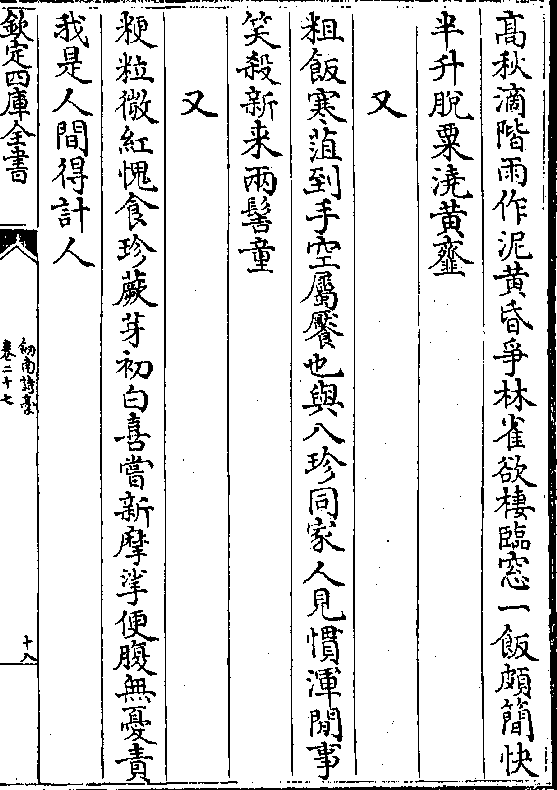 高秋滴階雨作泥黄昏爭林雀欲棲臨窓一飯頗簡快
半升脫粟澆黄虀
又
粗飯寒葅到手空屬饜也與八珍同家人見慣渾閒事
笑殺新来兩髻童
又
粳粒微紅愧食珍蕨芽初白喜嘗新摩挲便腹無憂責
我是人間得計人
欽定四庫全書
劒南詩藁
卷二十七
十八